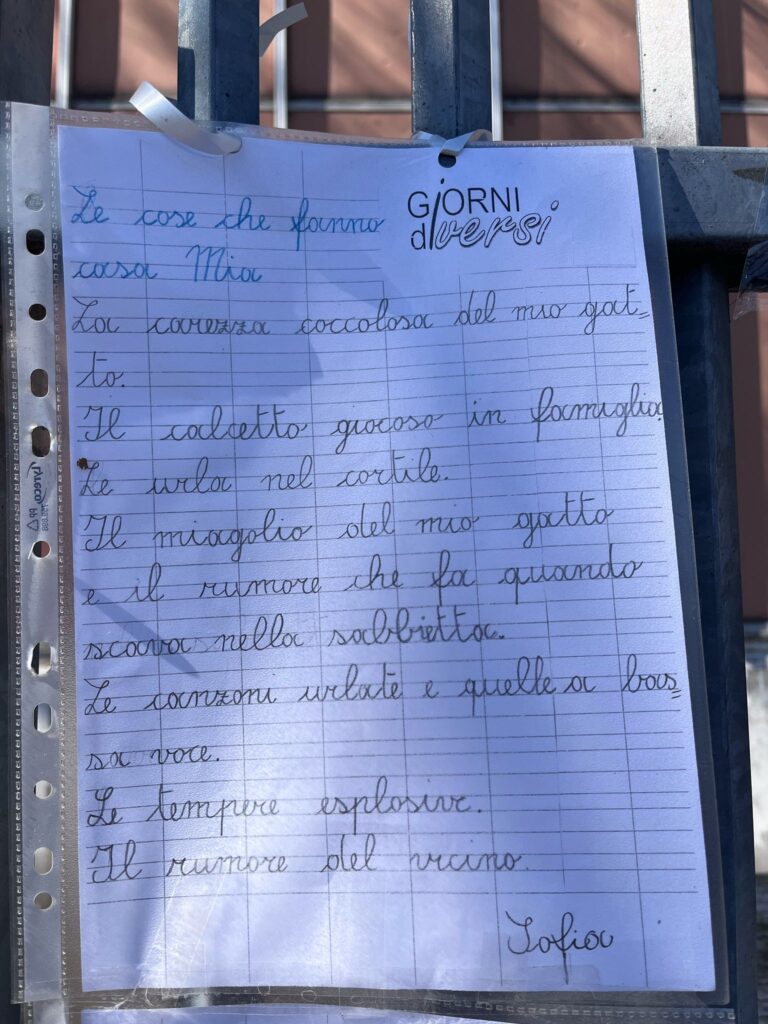 GiORNI
diversi
Le cose che fanno
casa Mia
La carezza coccolosa del mio gat=
to.
Il calcetto giocoso in famiglia.
Le urla nel cortile.
Il miagolio del mio gatto
e il rumore che fa quando
scava nella sabbietta.
Le canzoni urlate e quelle a bas=
sa voce.
Le tempere esplosive.
Il rumore del vicino.
Sofia